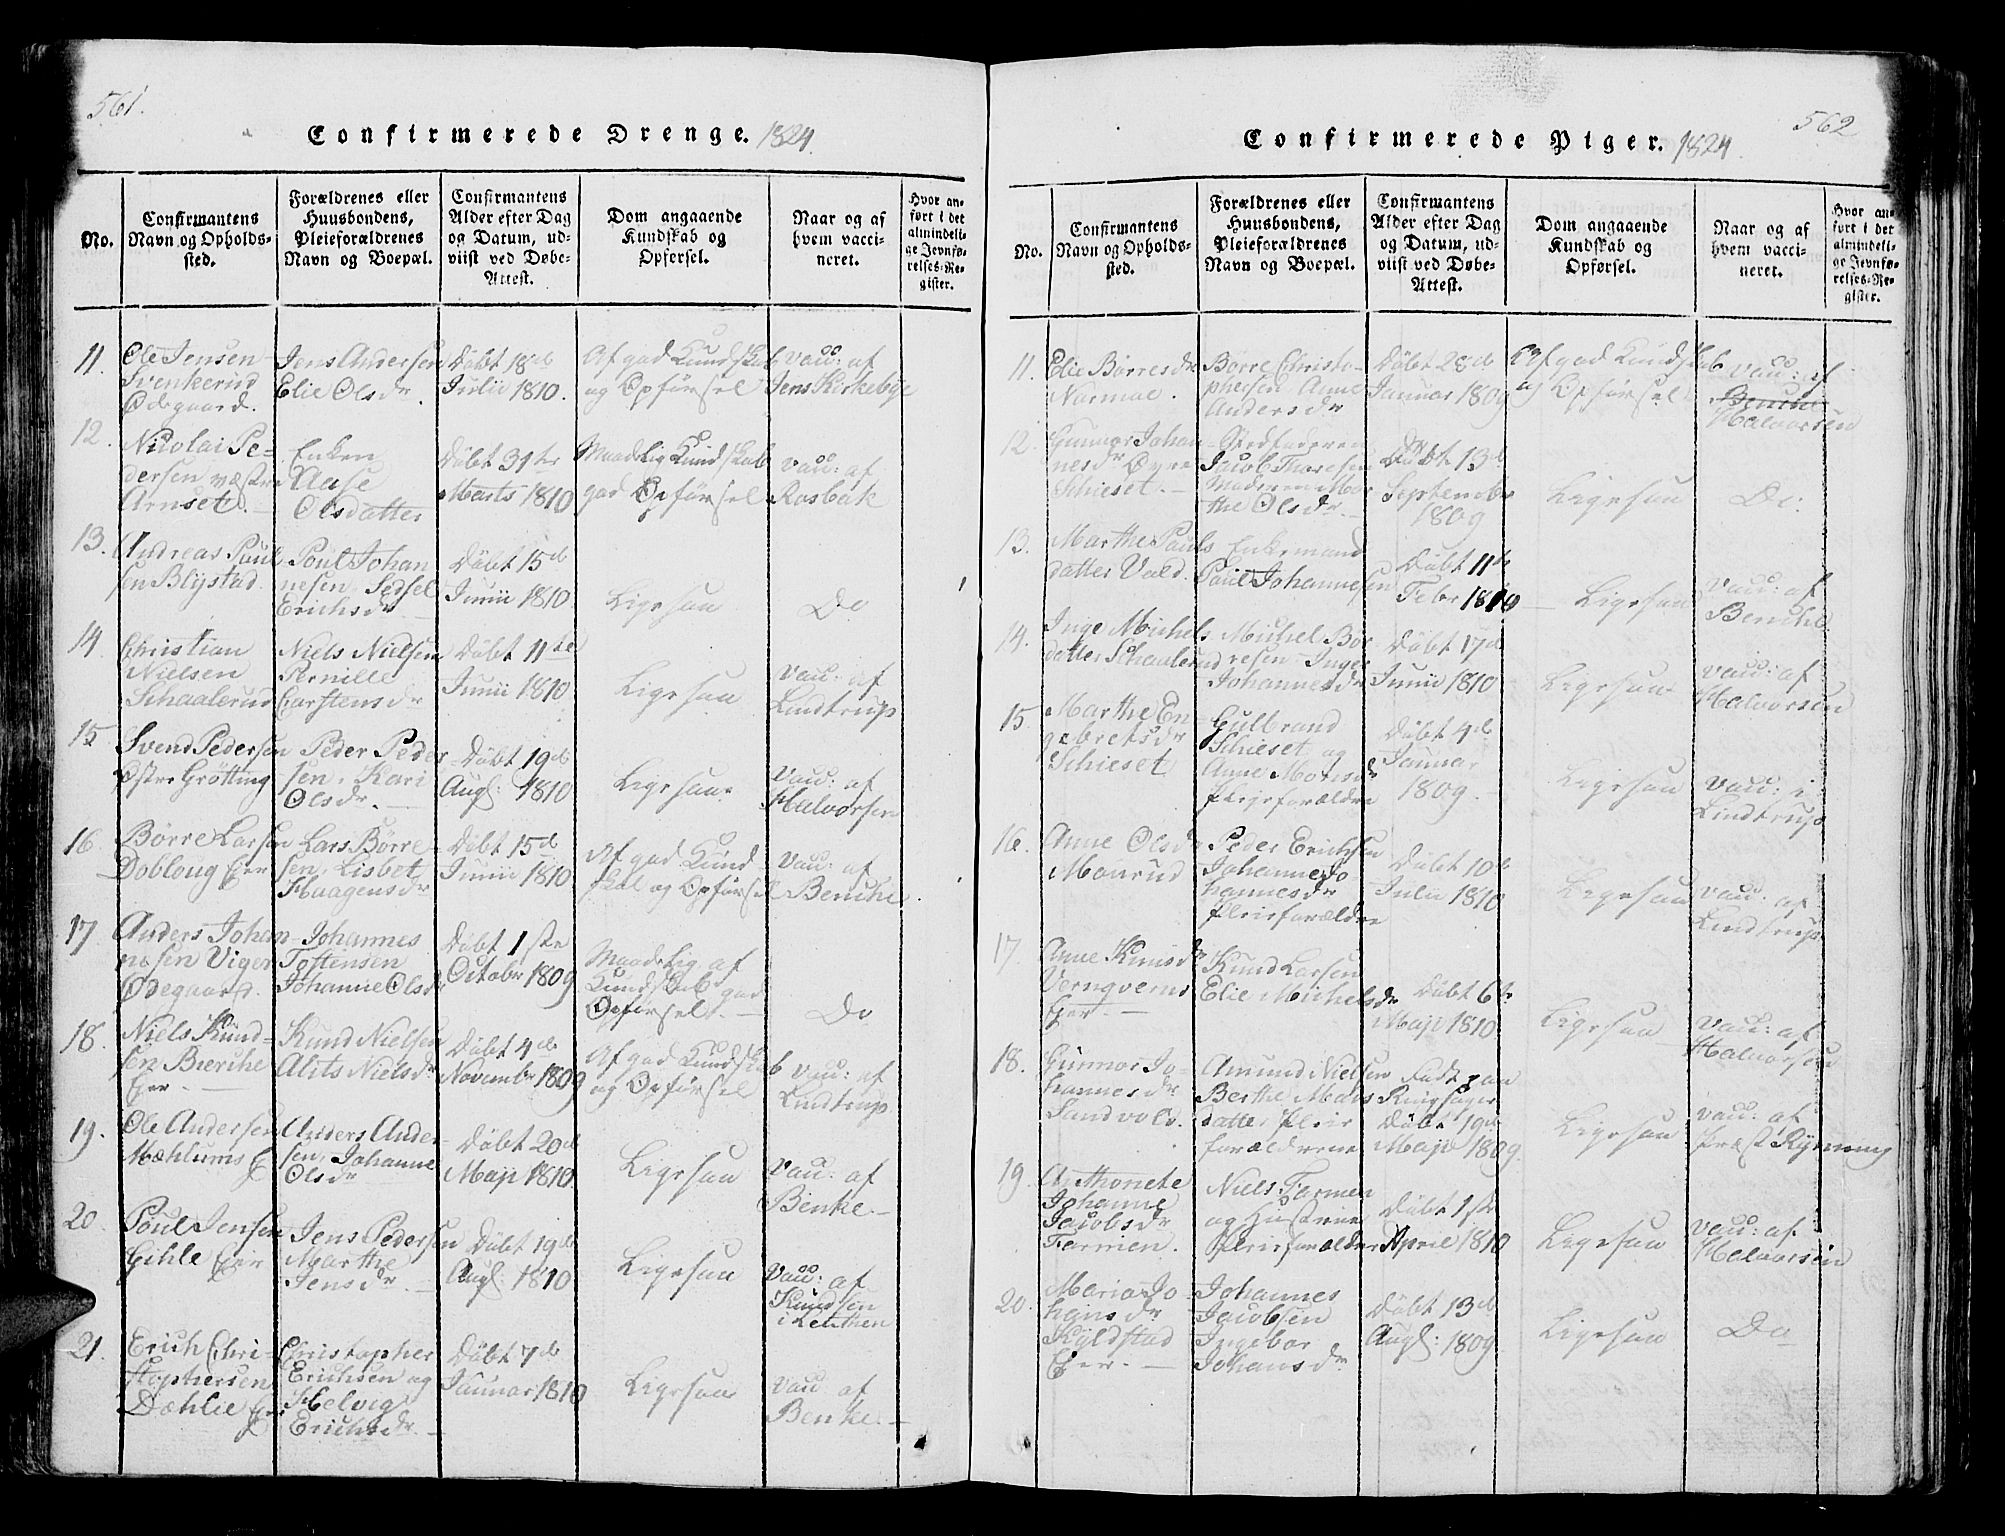 561.
Confirmerede Drenge. 1824
No.
Confirmantens Navn og Opholdssted.
Forældrenes eller Huusbondens, Pleieforældrenes Navn og Boepæl.
Confirmantens Alder efter Dag og Datum, udviist ved Døbe-Attest.
Dom angaaende Kundskab og Opførsel.
Naar og af hvem vaccineret.
Hvor anført i det almindelige Jevnførelses-Register.
11.
Ole Jensen
Svenkerud
Ødegaard.
Jens Andersen
Elie Olsdr.
Døbt 18de
Julii 1810.
Af god Kundskab
og Opførsel
Vacc: af
Jens Kirkebye
12.
Nicolai Pe-
dersen væstre
Arnset.
Enken
Aase
Olsdatter
Døbt 31te
Marts 1810
Maadelig Kundskab
god Opførsel
Vacc: af
Rosbak
13.
Andreas Paul
sen Blystad.
Poul Johan
nesen, Sedsel
Erichsdr
Døbt 15de
Junii 1810.
Ligesaa
Do
14.
Christian
Nielsen
Schaalerud
Niels Nielsen
Pernille
Carstensdr
Døbt 11te
Junii 1810
Ligesaa
Vacc: af
Lindtrup
15
Svend Pedersen
Østre Grötting
Peder Peder
sen, Kari
Olsdr.
Døbt 19de
Augs: 1810
Ligesaa
Vacc: af
Halvorsen
16.
Børre Larsen
Dobloug Eier
Lars Børre
sen, Lisbet
Haagensdr
Døbt 15de
Junii 1810
Af god Kund
skab og Opførsel
Vacc: af
Benche
17
Anders Johan
nesen Viger
Ødegaard.
Johannes
Tostensen
Johanne Olsdr
Døbt 1ste
October 1809
Maadelig af
Kundskab god
Opførsel.
Do
18.
Niels Knud-
sen Bierche
Eier
Knud Nielsen
Alits Nielsdr
Døbt 4de
November 1809
Af god Kundskab
og Opførsel
Vacc: af
Lindtrup
19.
Ole Andersen
Mæhlums E
Anders Ander-
sen, Johanne
Olsdr
Døbt 20de
Maji 1810.
Ligesaa
Vacc: af
Benke
20.
Poul Jensen
Gihle Eier
Jens Pedersen
Marthe
Jensdr.
Døbt 19de
Augs: 1810
Ligesaa
Vacc: af
Knudsen
i Leuthen
21.
Erich Chri-
stophersen
Dæhlie Eier
Christopher
Erichsen og
Helvig
Erichsdr
Døbt 7de
Januar 1810
Ligesaa
Vacc af
Benke.
562
Confirmerede Piger. 1824
No.
Confirmantens Navn og Opholdssted.
Forældrenes eller Huusbondens, Pleieforældrenes Navn og Boepæl.
Confirmantens Alder efter Dag og Datum, udviist ved Døbe-Attest.
Dom angaaende Kundskab og Opførsel.
Naar og af hvem vaccineret.
Hvor anført i det almindelige Jevnførelses-Register.
11.
Elie Børresdr
Normoe.
Børre Christo-
phersen Anne
Andersdr
Døbt 28de
Januar 1809
Af god Kundskab
og Opførsel
Vacc: af
Benche
Halvorsen
12.
Gunnor Johan
nesdr Øvre
Schieset.
Stedfaderen
Jacob Thoresen
Moderen Mar
the Olsdr.
Døbt 13de
September
1809
Ligesaa
Do.
13.
Marthe Pauls
datter Vold.
Enkemand
Paul Johannesen
Døbt 11te
Febr 1810
Ligesaa
Vacc: af
Benche
14.
Inge Michels
datter Schaalerud
Michel Bør
resen Inger
Johannesdr
Døbt 17de
Junii 1810
Ligesaa
Vacc: af
Halvorsen
15
Marthe En
gebretsdr
Schieset
Gulbrand
Schieset og
Anne Monsdr
Pleieforældre
Døbt 4de
Januar
1809.
Ligesaa
Vacc: i
Lindtrup
16.
Anne Olsdr
Mourud
Peder Erichsen
Johanne Jo
hannesdr
Pleieforældre
Døbt 10de
Julii 1810
Ligesaa
Vacc: af
Lindtrup
17.
Anne Knusdr
Vernqverns
Eier.
Knud Larsen
Elie Michelsdr
Døbt 6te
Maji 1810
Ligesaa
Vacc: af
Halvorsen
18.
Gunnor Jo-
hannesdr
Sandvold.
Amund Nielsen
Berthe Mads
datter Pleie
forældrene
Født paa
Ringsager
Døbt 19de
Maji 1809.
Ligesaa
Vacc: af
Præst Rynning
19
Anthonete
Johanne
Jacobsdr
Farmen.
Niels Farmen
og Hustrue
Pleieforældre
Døbt 1ste
April 1810
Ligesaa
Vacc: af
Halvorsen
20.
Maria Jo
hansdr
Kyldstad
Eier.
Johannes
Jacobsen
Ingebor
Johansdr
Døbt 13de
Augs: 1809.
Ligesaa
Do